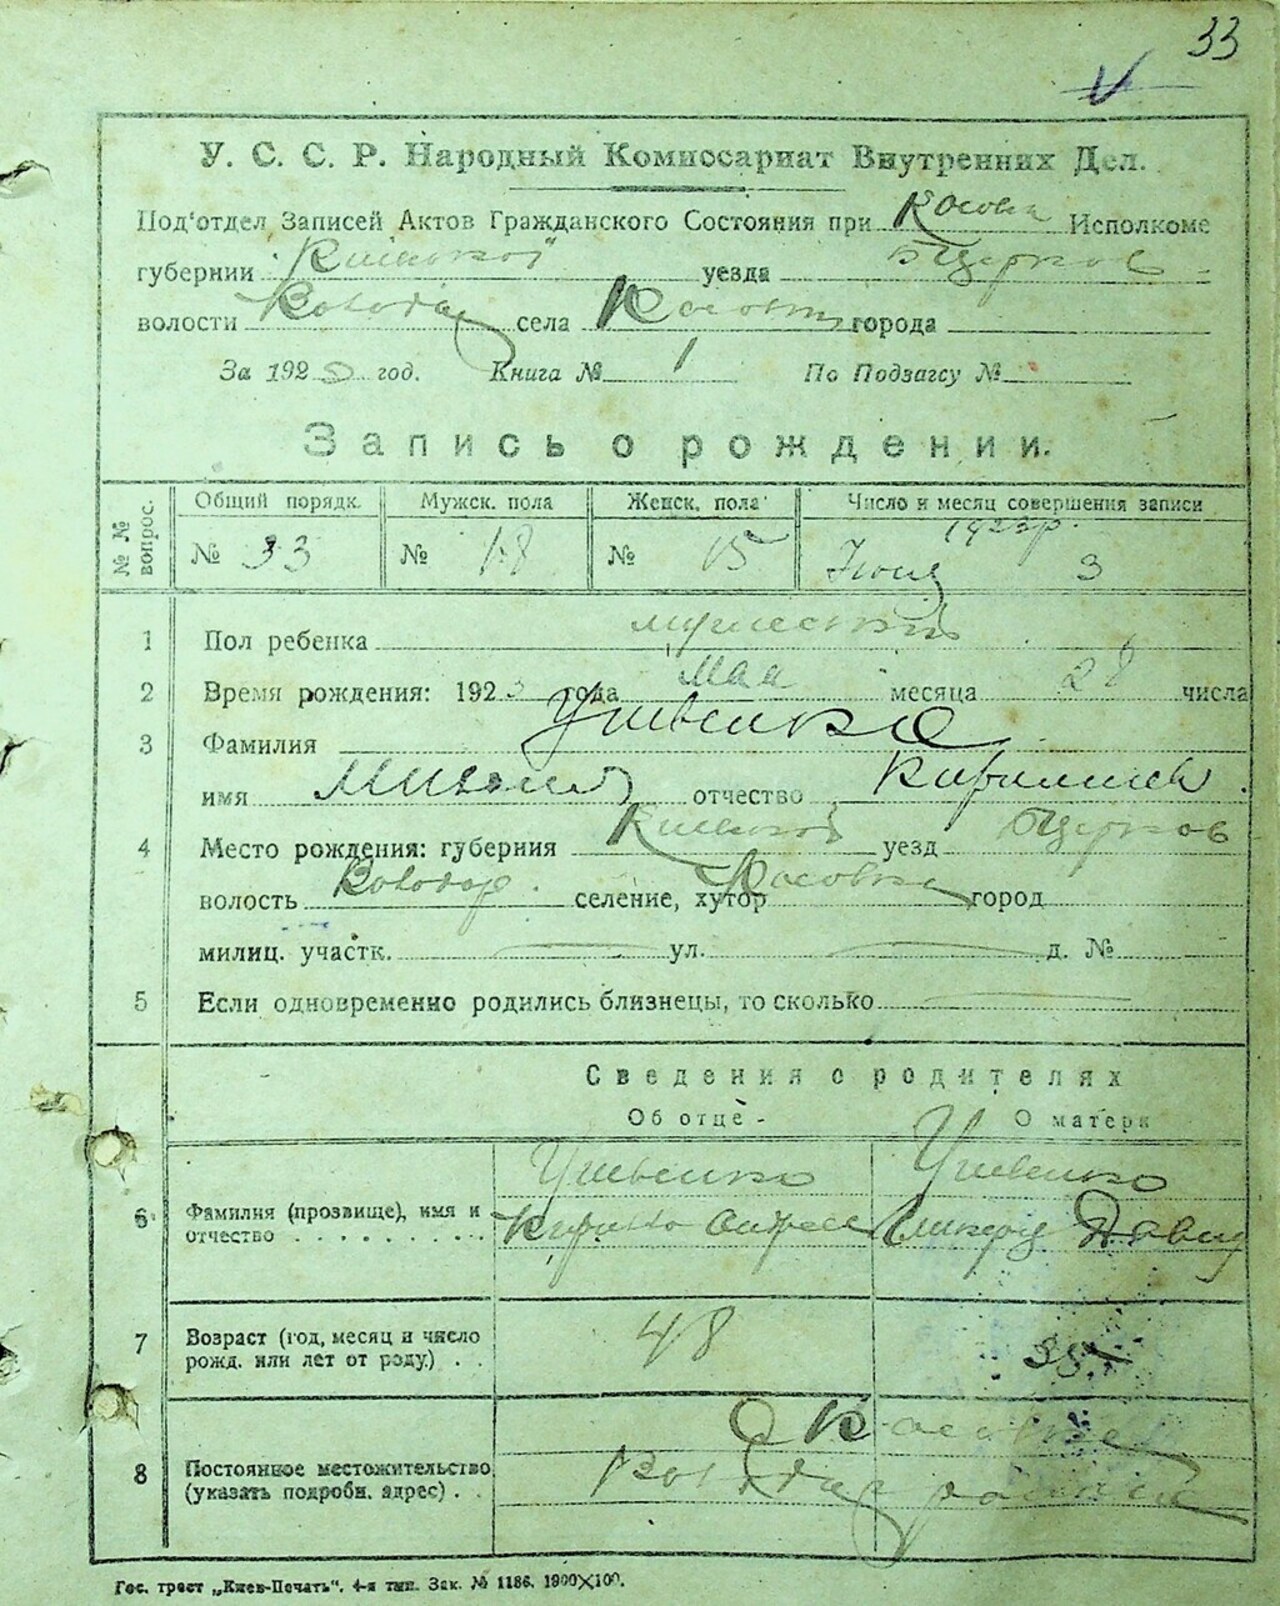 33
У. С. С. Р. Народный Комиссариат Внутренних Дел.
Под'отдел Записей Актов Гражданского Состояния при Косовк Исполкоме
губернии Киевской уезда БЦерков
волости Володар села Косовки города
За 1923 год. Книга № 1 По Подзагсу №
Запись о рождении.
№ № вопрос. Общий порядк. Мужск. пола Женск. пола Число и месяц совершения записи
1923р.
№ 33 № 18 № 15 Июня 3
1 Пол ребенка мужеский
2 Время рождения: 1923 года Мая месяца 28 числа
3 Фамилия
имя Михаил отчество
4 Место рождения: губерния Киевской уезд БЦерков
волость Володар. селение, хутор Косовка город
милиц. участк. — ул. — д. №
5 Если одновременно родились близнецы, то сколько —
Сведения о родителях
Об отце - О матери
6 Фамилия (прозвище), имя и
отчество . . . . . . . . . Кирило Андреев Давид
7 Возраст (год, месяц и число
рожд. или лет от роду.) . . 48 35
8 Постоянное местожительство
(указать подробн. адрес) . . Косовка
Володар района
Гос. трест „Киев-Печать“. 4-я тип. Зак. № 1186. 1900×100.